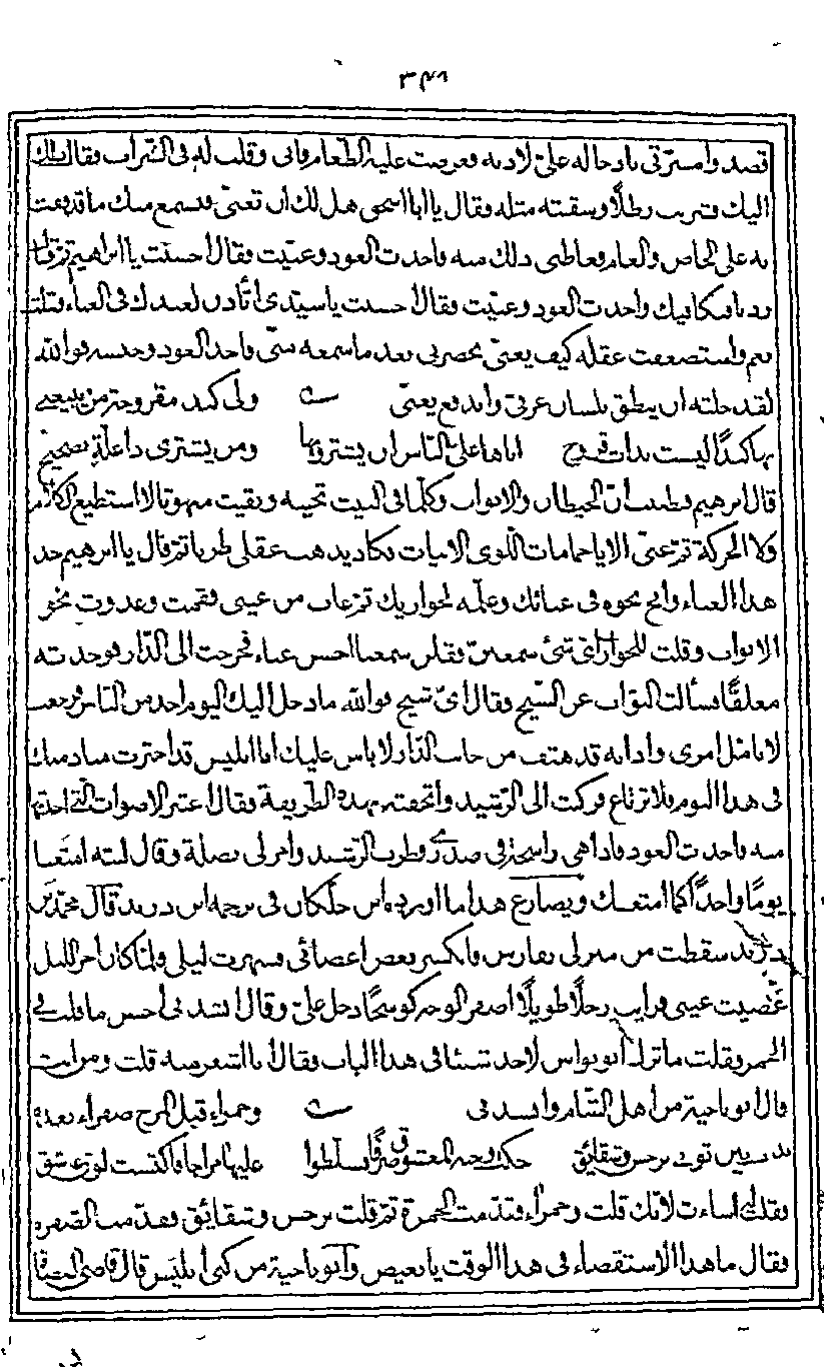 ٣٤٨
قصد وامسرّتى بادخاله علىّ لادبه فعرضت عليه الطعام فابى وقلت له فى الشراب فقال ذلك
اليك فشربت رطلًا وسقيته مثله فقال يا ابا اسحق هل لك ان تغنى فنسمع منك ما قد فقت
به على الخاص والعام فغاظنى ذلك منه فاخذت العود وغنيت فقال احسنت يا ابراهيم ثم قال
زدنا نكافيك فاخذت العود وغنيت فقال احسنت يا سيدى اتأذن لعبدك فى الغناء فقلت
نعم واستضعفت عقله كيف يغنى بحضرتى بعد ما سمعه منى فاخذ العود وجسه فوالله
لقد خلته ان ينطق بلسان عربى واندفع يغنى ولى كبد مقروحة من يبيعنى
بها كبدًا ليست بذات قروح اباها على الناس ان يشتروها ومن يشترى ذا علة بصحيح
قال ابرهيم فظننت انّ الحيطان والابواب وكلما فى البيت تجيبه وبقيت مبهوتا لا استطيع الكلام
ولا الحركة ثم غنى الا يا حمامات اللوى الابيات فكاد يذهب عقلى طربا ثم قال يا ابرهيم خذ
هذا الغناء وانح نحوه فى غنائك وعلمه لجواريك ثم غاب من عينى فقمت وعدوت نحو
الابواب وقلت للجوارى اىّ شئ سمعتنّ فقلن سمعنا احسن غناء فخرجت الى الدار فوجدته
مغلقًا فسألت البواب عن الشيخ فقال اىّ شيخ فوالله ما دخل اليك اليوم احد من الناس فرجعت
لاتامل امرى واذا به قد هتف من جانب الدار لا باس عليك انا ابليس قد اخترت منادمتك
فى هذا اليوم فلا ترتاع فركبت الى الرشيد واتحفته بهذه الطريفة فقال اعتبر الاصوات التى اخذتها
منه فاخذت العود فاذا هى راسخة فى صدرى فطرب الرشيد وامر لى بصلة وقال ليته امتعنا
يومًا واحدًا كما امتعك ويضارع هذا ما اورده ابن خلكان فى ترجمة ابن دريد قال محمد بن
دريد سقطت من منزلى بفارس فانكسر بعض اعضائى فسهرت ليلى ولما كان اخر الليل
غمضت عينى فرايت رجلًا طويلًا اصفر الوجه كوسجًا دخل علىّ وقال انشدنى احسن ما قلت فى
الخمر فقلت ما ترك ابو نواس لاحد شيئا فى هذا الباب فقال انا اشعر منه قلت ومن انت
قال ابو ناجية من اهل الشام وانشدنى وحمراء قبل المزج صفراء بعده
بدت بين ثوبى نرجس وشقائق حكت وجه المعشوق صرفًا فسلطوا عليها مزاجا فاكتست لون عاشق
فقلت له اسات لانك قلت وحمراء فقدمت الحمرة ثم قلت نرجس وشقائق فقدمت الصفرة
فقال ما هذا الاستقصاء فى هذا الوقت يا بغيض وابو ناجية من كنى ابليس قال قاضى القضاة